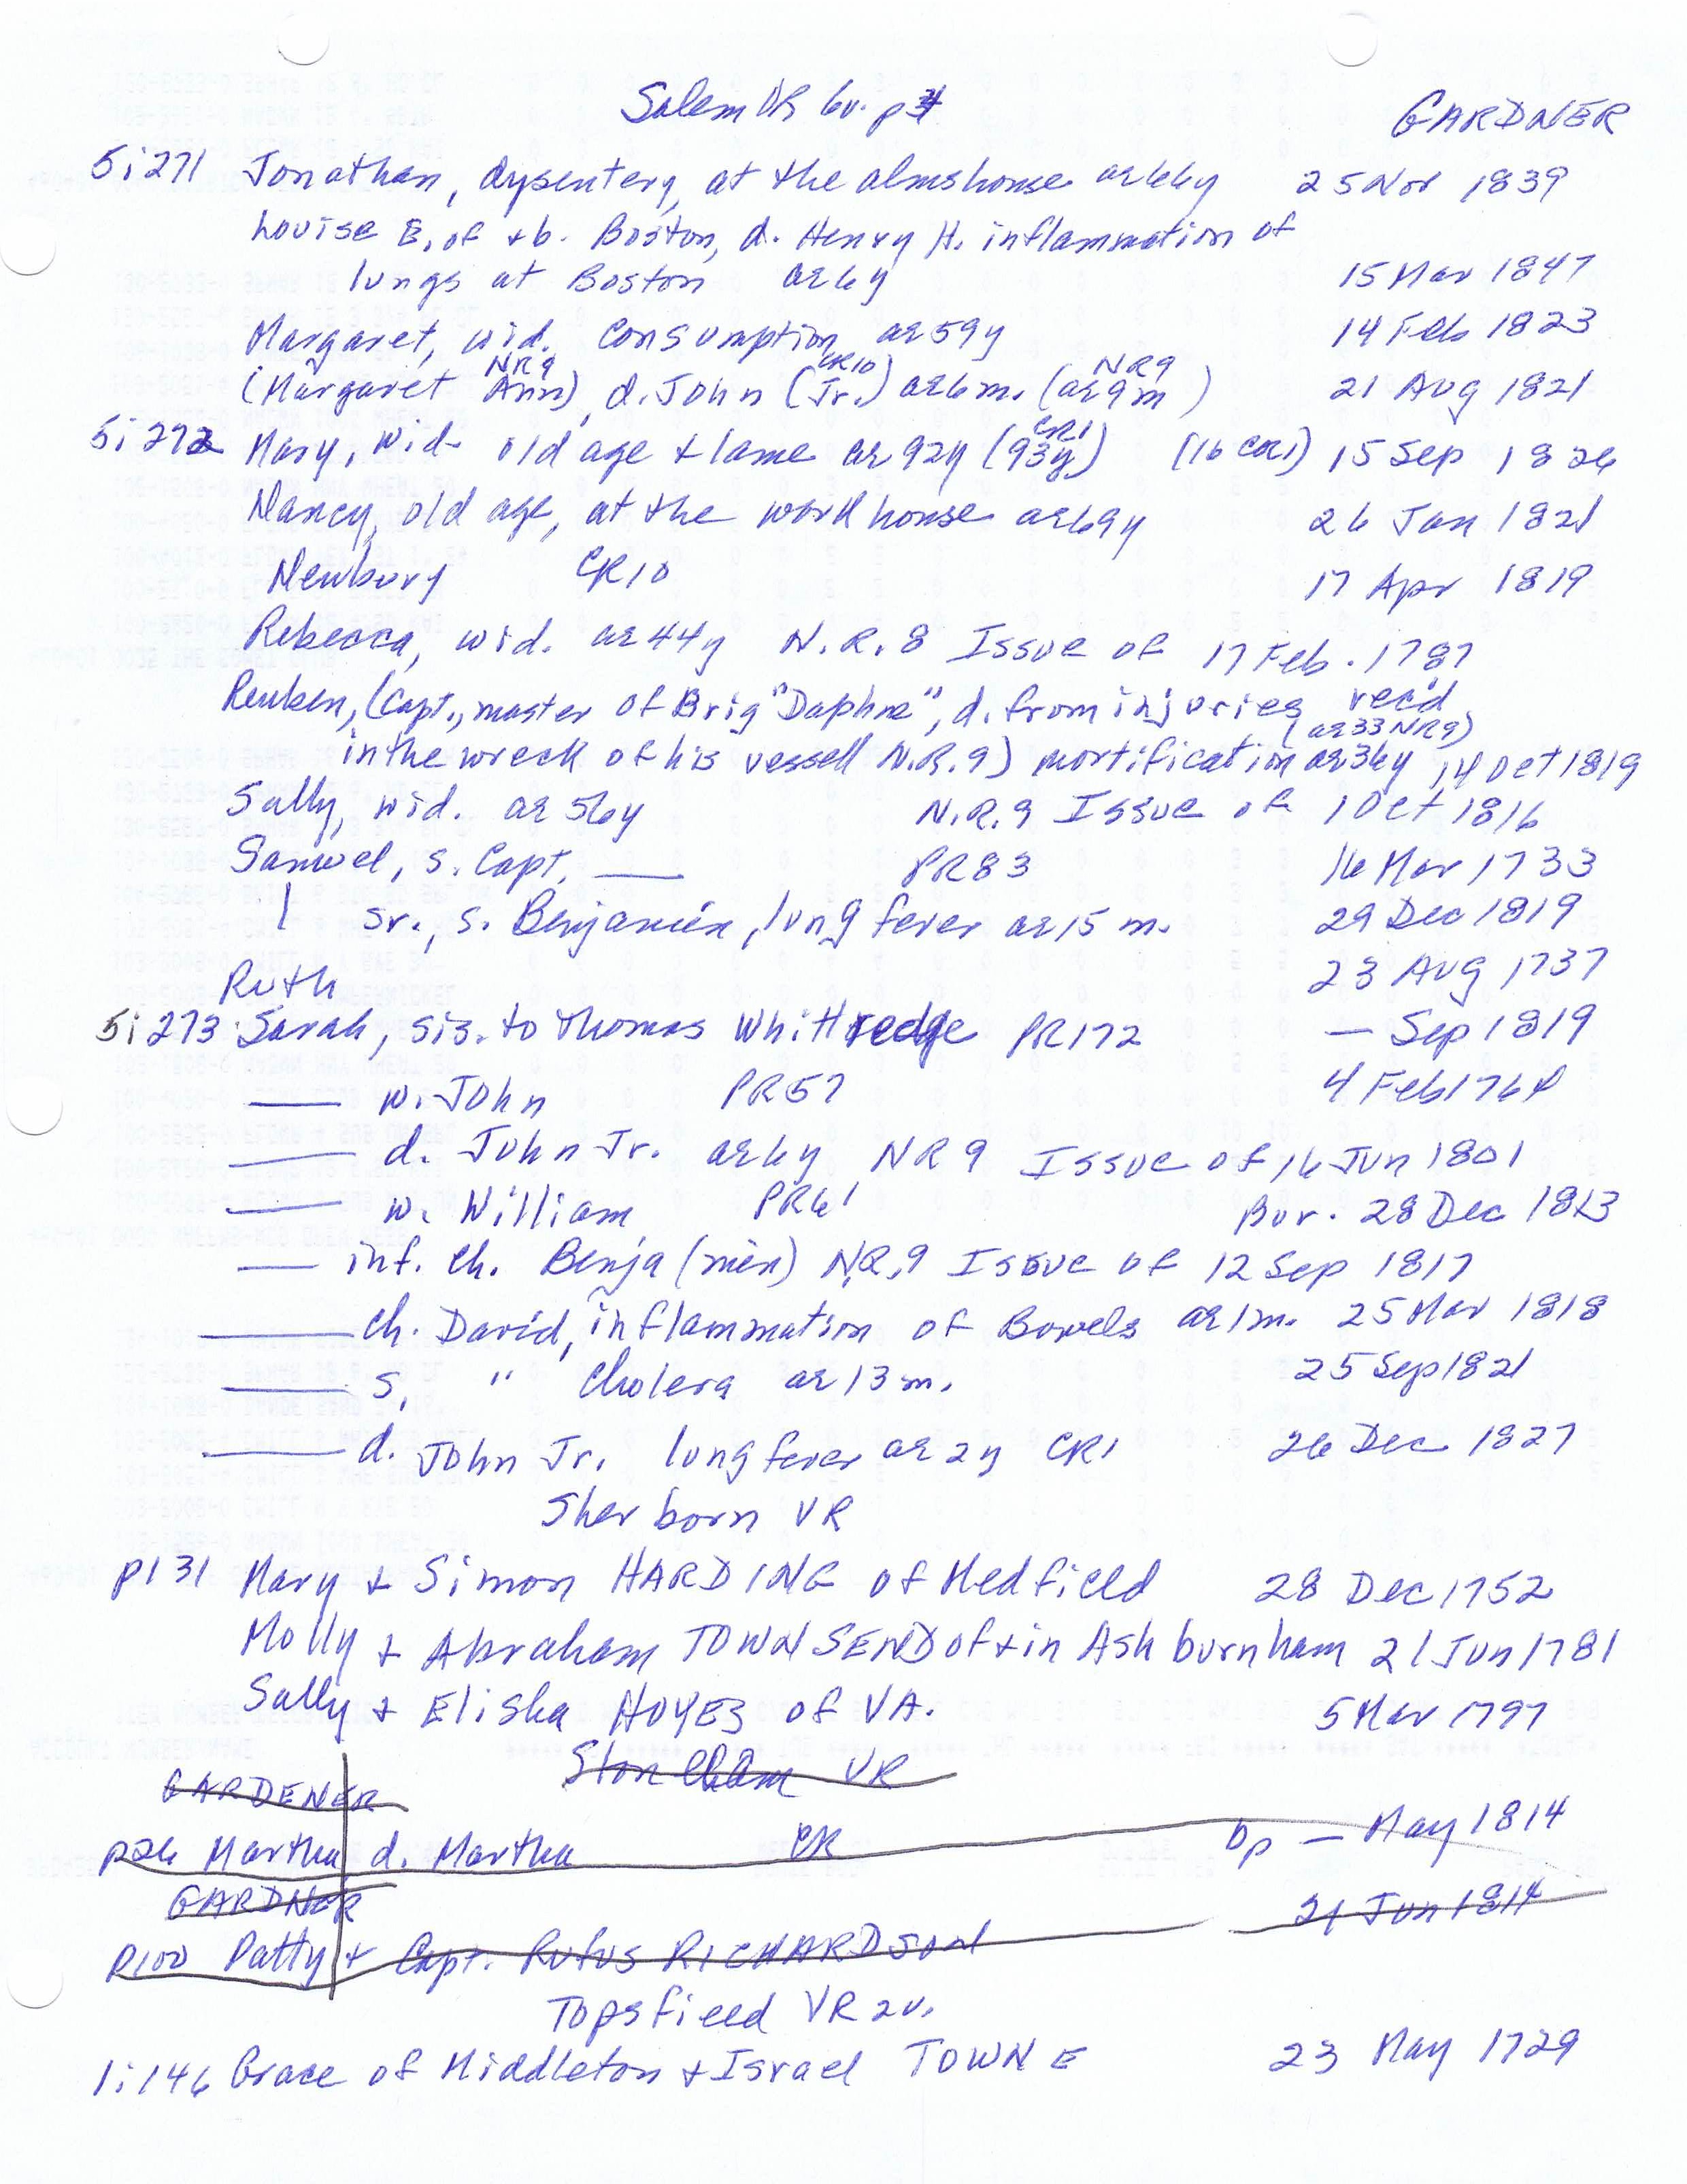 Salem VR 6v. p
GARDNER
5:271 Jonathan, dysentery, at the almshouse ae66y 25 Nov 1839
Louise E, of +b. Boston, d. Henry H. inflammation of
lungs at Boston ae6y 15 Mar 1847
Margaret, wid. consumption ae59y 14 Feb 1823
NR9 CR10 NR9
(Margaret Ann), d. John (Jr.) ae6m. (ae9m) 21 Aug 1821
CR1
5:272 Mary, wid. old age + lame ae92y (93y) (16 CR1) 15 Sep 1826
Nancy, old age, at the workhouse ae69y 26 Jan 1821
Newbury CR10 17 Apr 1819
Rebecca, wid. ae44y N.R.8 Issue of 17 Feb. 1787
Reuben, (Capt., master of Brig "Daphne", d. from injuries rec'd
(ae33 NR9)
in the wreck of his vessell N.R.9) mortification ae36y 14 Oct 1819
Sally, wid. ae56y N.R.9 Issue of 1 Oct 1816
Samuel, s. Capt. — PR83 16 Mar 1733
sr., s. Benjamin, lung fever ae15 m. 29 Dec 1819
Ruth 23 Aug 1737
5:273 Sarah, sis. to Thomas Whittredge PR172 — Sep 1819
— w. John PR57 4 Feb 1764
— d. John Jr. ae6y NR9 Issue of 16 Jun 1801
— w. William PR61 Bur. 28 Dec 1813
— inf. ch. Benja (min) N.R.9 Issue of 12 Sep 1817
— ch. David, inflammation of Bowels ae1m. 25 Mar 1818
— s. " Cholera ae13m. 25 Sep 1821
— d. John Jr. lung fever ae2y CR1 26 Dec 1827
Sherborn VR
p131 Mary + Simon HARDING of Medfield 28 Dec 1752
Molly + Abraham TOWNSEND of + in Ashburnham 21 Jun 1781
Sally + Elisha NOYES of VA. 5 Mar 1797
Stoneham VR
GARDENER
p26 Martha d. Martha CR bp — May 1814
GARDNER
p100 Patty + Capt. Rufus RICHARDSON 21 Jun 1814
Topsfield VR 2v.
1:146 Grace of Middleton + Israel TOWNE 23 May 1729